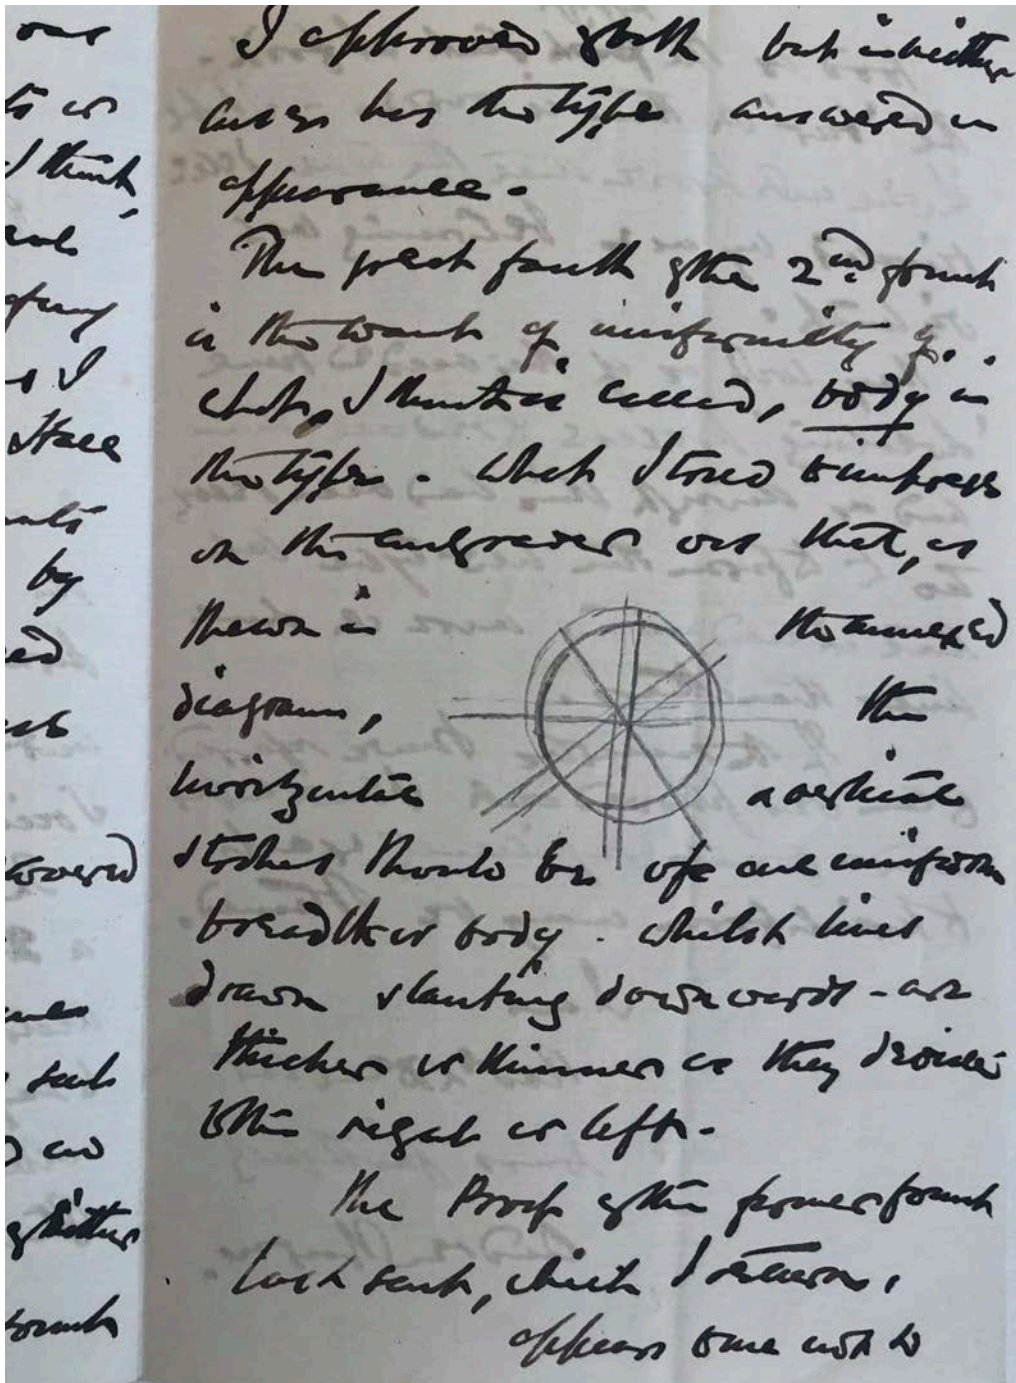 our
to or
I think,
I approved of both but in neither
cases has the type answered in
appearance.
The great fault of the 2nd. fount
is the want of uniformity of..
what, I think is called, body in
the types. What I tried to impress
by
on the engraver was that, as
shewn in the annexed
diagram, the
horizontal & vertical
strokes should be of one uniform
breadth or body. whilst lines
drawn slanting downwards - are
thicker or thinner as they divide
to the right or left.
The Proof of the former fount
last sent, which I return,
appears to me not to